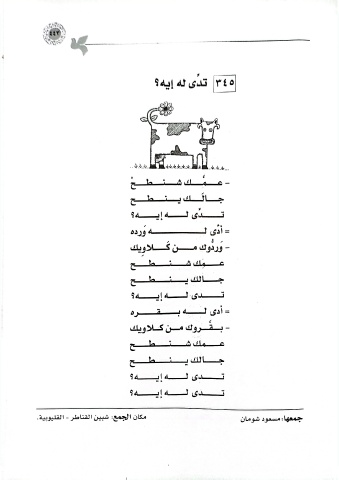 ٤٤٢
٣٤٥ تدِّى له إيه؟
- عمَّك شنطحْ
جالَك ينطحْ
تدِّى له إيه؟
= أدَّى له وَرده
- وَردُّوك من كَلاويك
عمك شنطح
جالك ينطح
تدى له إيه؟
= أدى له بقره
- بقَّروك من كلاويك
عمك شنطح
جالك ينطح
تدى له إيه؟
تدى له إيه؟
جمعها: مسعود شومان
مكان الجمع: شبين القناطر - القليوبية.